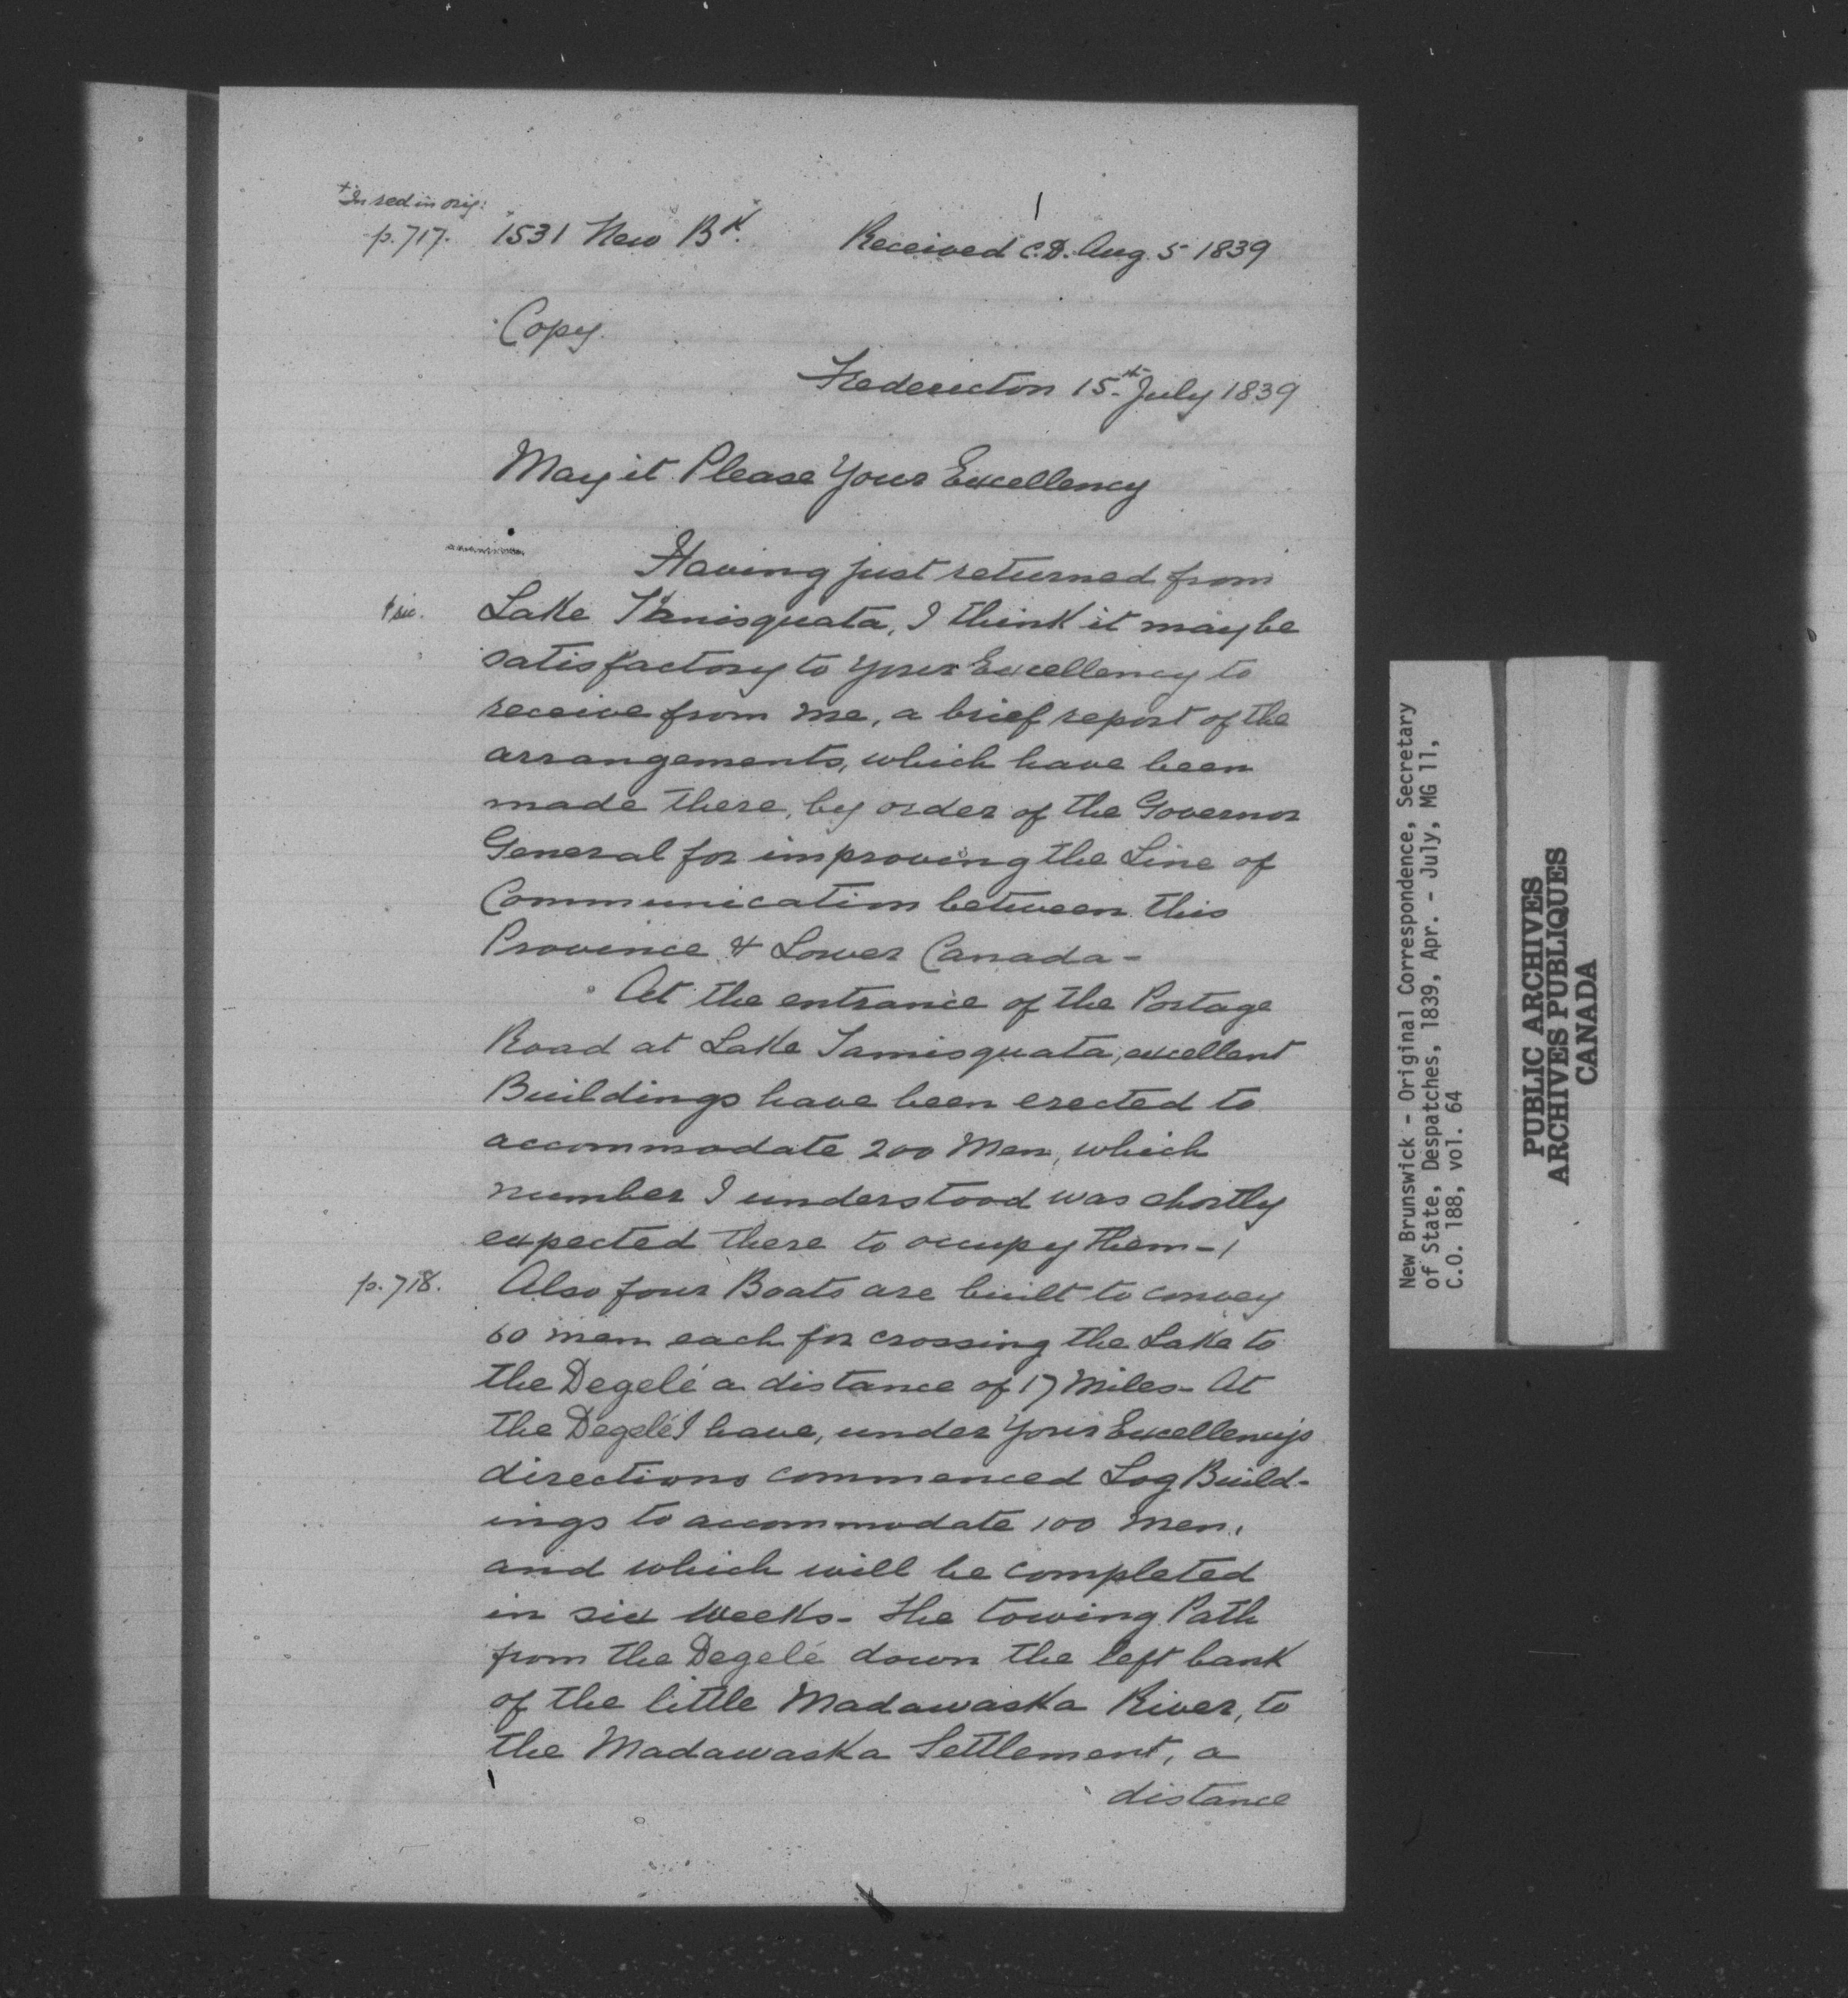 + In red in orig:
p. 717. + 1531 New Bk. Received C.D. Aug. 5 1839
Copy.
Fredericton 15th July 1839
May it Please Your Excellency
Having just returned from
+ sic. Lake Tanisquata, I think it may be
satisfactory to your Excellency to
receive from me, a brief report of the
arrangements, which have been
made there, by order of the Governor
General for improving the Line of
Communication between this
Province & Lower Canada -
At the entrance of the Portage
Road at Lake Tamisquata, excellent
Buildings have been erected to
accommodate 200 Men, which
number I understood was shortly
expected there to occupy them - /
p. 718. Also four Boats are built to convey
60 men each for crossing the Lake to
the Degelé a distance of 17 Miles - At
the Degelé I have, under Your Excellency's
directions commenced Log Build-
ings to accommodate 100 Men,
and which will be completed
in six Weeks - the towing Path
from the Degelé down the left bank
of the little Madawaska River, to
the Madawaska Settlement, a
distance
New Brunswick - Original Correspondence, Secretary
of State, Despatches, 1839, Apr. - July, MG 11,
C.O. 188, vol. 64
PUBLIC ARCHIVES
ARCHIVES PUBLIQUES
CANADA